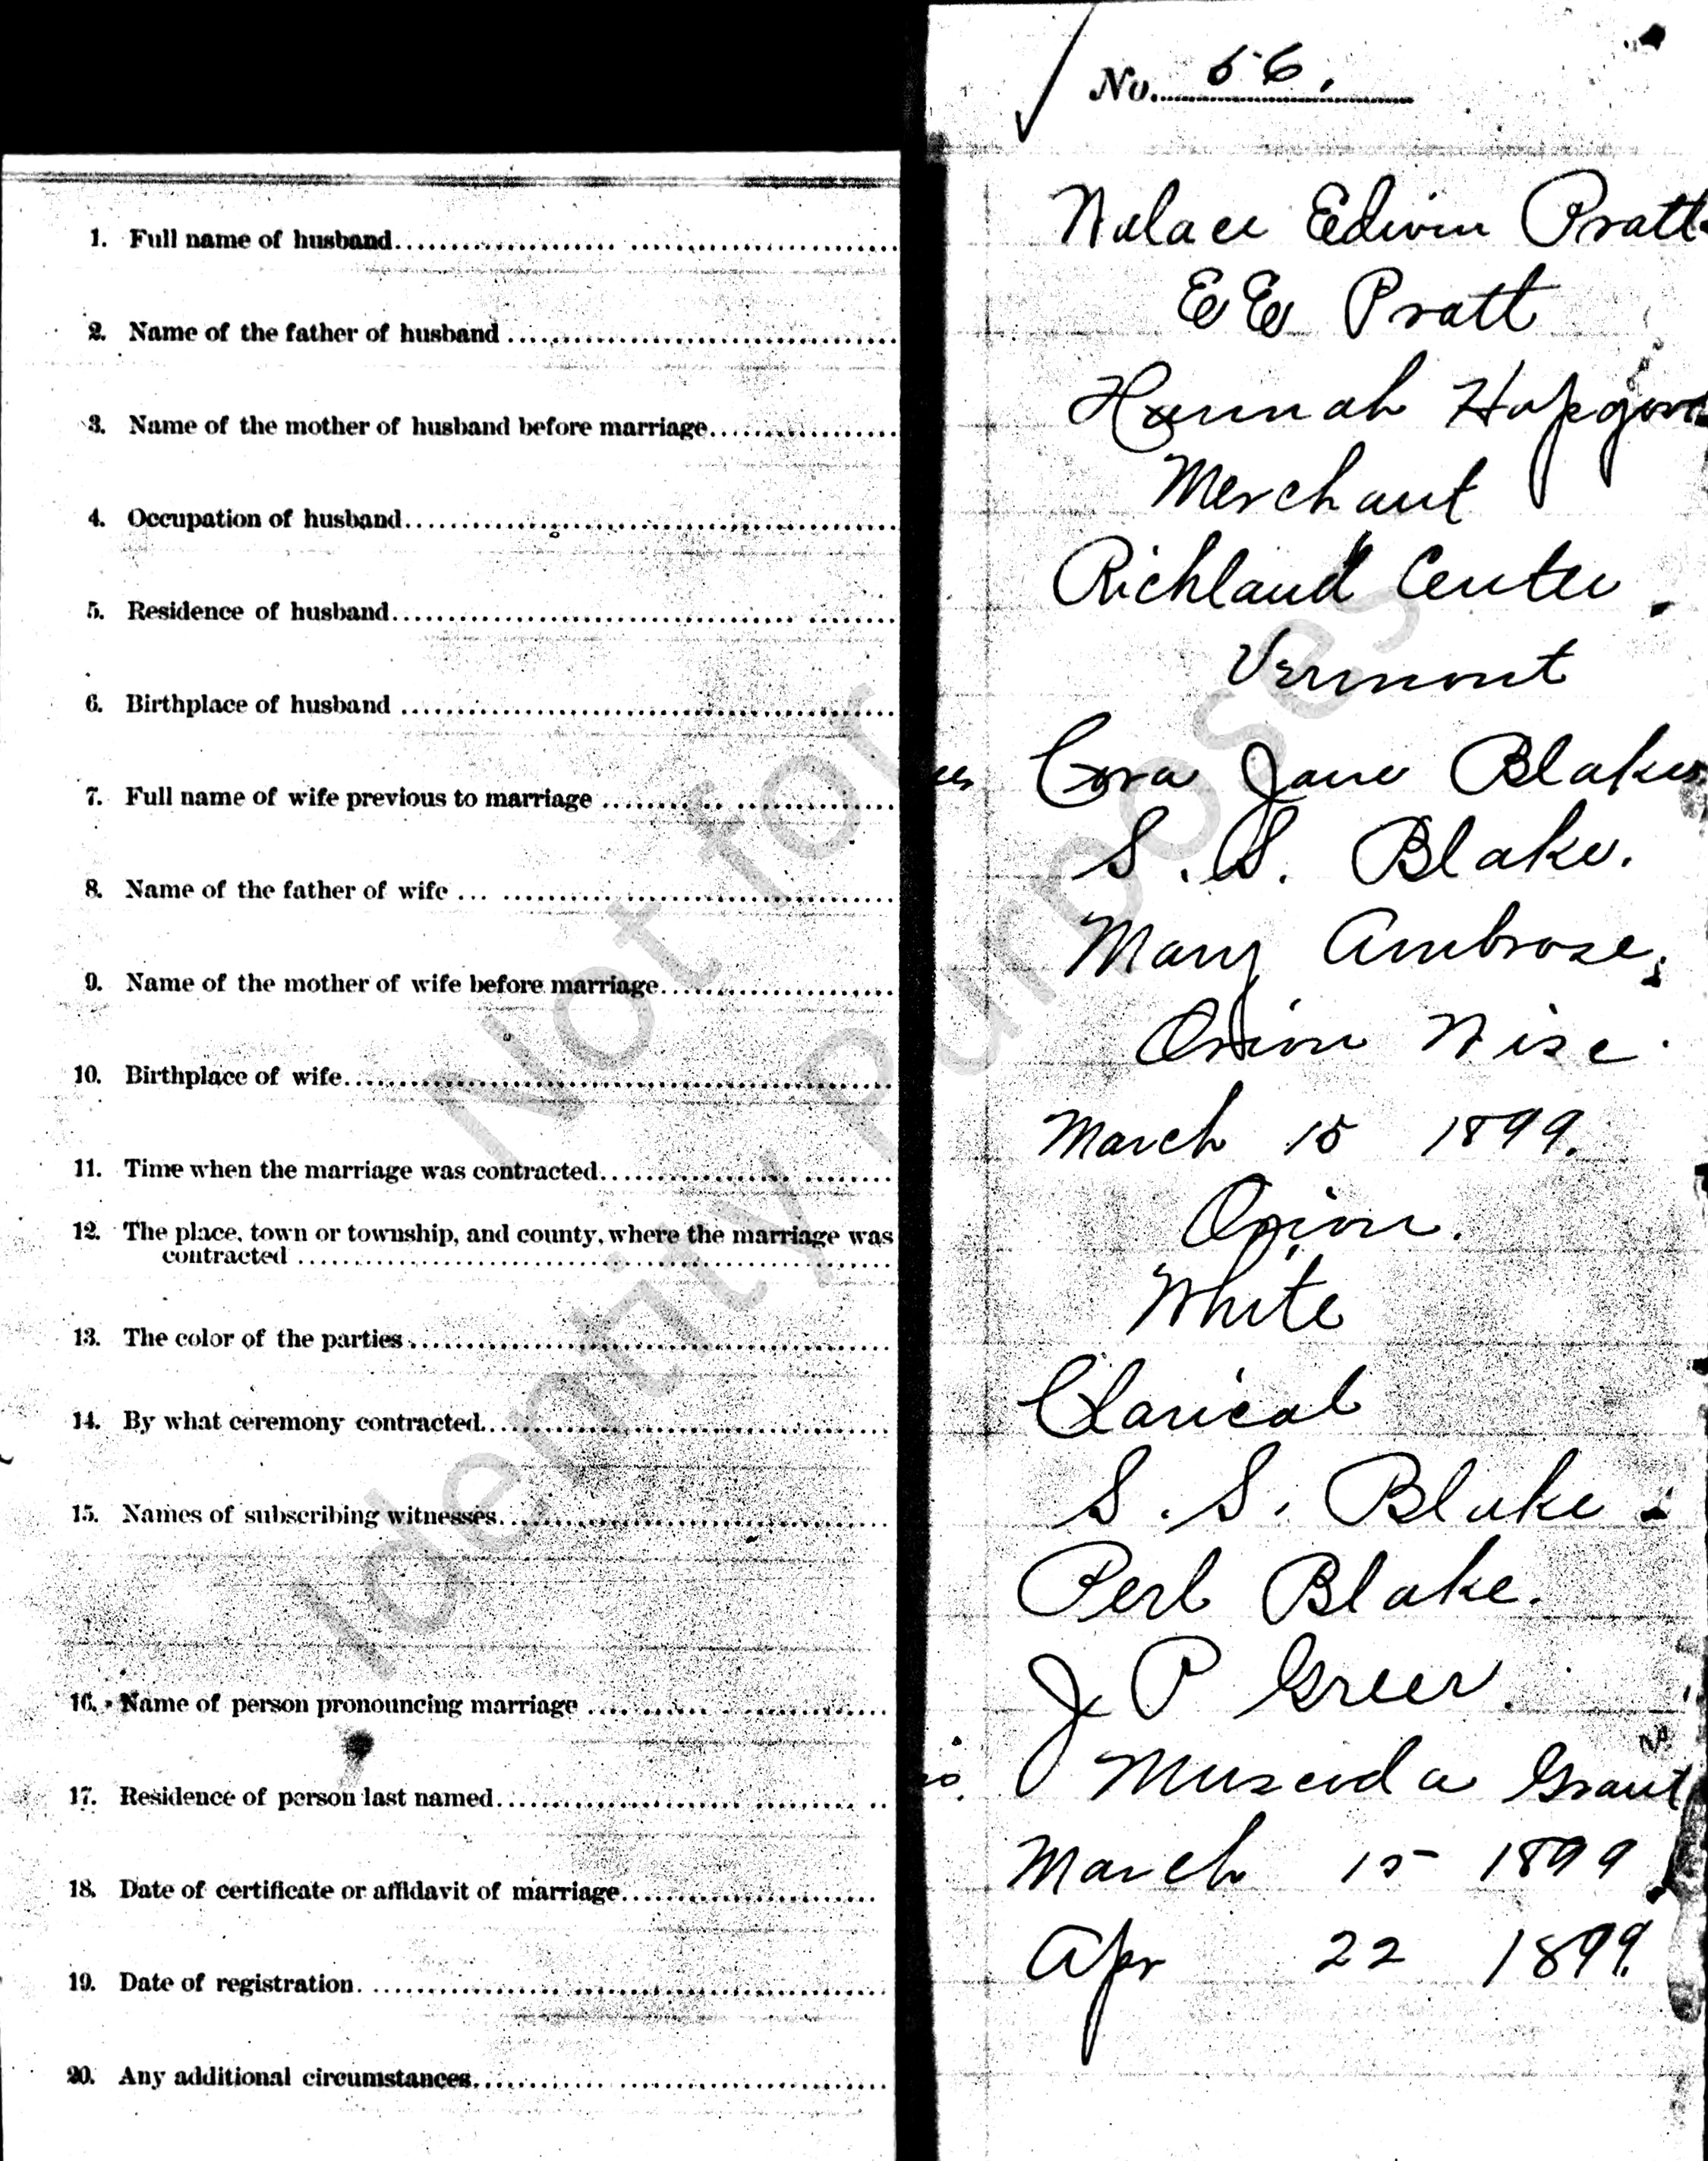 No. 56.
1. Full name of husband
Walace Edwin Pratt
2. Name of the father of husband
E E Pratt
3. Name of the mother of husband before marriage
Hannah Hapgood
4. Occupation of husband
Merchant
5. Residence of husband
Richland Center.
6. Birthplace of husband
Vermont
7. Full name of wife previous to marriage
Cora Jane Blake
8. Name of the father of wife
S. S. Blake.
9. Name of the mother of wife before marriage
Mary Ambrose
10. Birthplace of wife
Orion Wisc.
11. Time when the marriage was contracted
March 15 1899.
12. The place, town or township, and county, where the marriage was
contracted
Orion.
13. The color of the parties
White
14. By what ceremony contracted
Clarical
15. Names of subscribing witnesses
S. S. Blake
Perl Blake.
16. Name of person pronouncing marriage
J P Greer.
17. Residence of person last named
Muscoda Grant
18. Date of certificate or affidavit of marriage
March 15 1899
19. Date of registration
Apr 22 1899.
20. Any additional circumstances
Not for
Identity Purposes